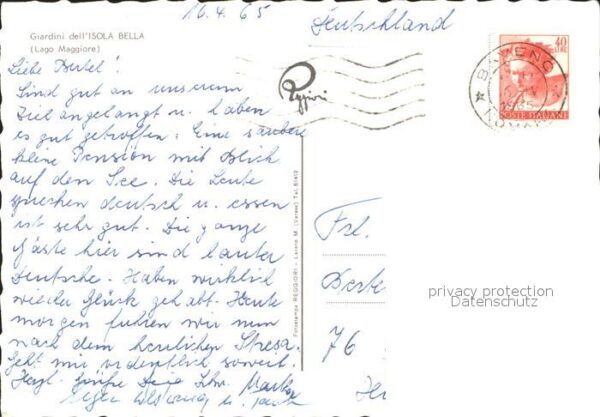 16.4.65
Deutschland
Giardini dell'ISOLA BELLA
(Lago Maggiore)
Liebe Bertel!
Sind gut an unserem
Ziel angelangt u. haben
es gut getroffen: Eine saubere
kleine Pension mit Blick
auf den See. Die Leute
sprechen deutsch u. essen
ist sehr gut. Die ganze
Gäste hier sind lauter
Deutsche. Haben wirklich
wieder Glück gehabt. Heute
morgen fuhren wir nun
nach dem herrlichen Stresa.
Geht mir ordentlich soweit.
Herzl. Grüße
Reggiori
40
BAVENO
1965
POSTE ITALIANE
Fotostampa REGGIORI - Laveno M. (Varese) Tel.
Frl.
76
privacy protection
Datenschutz